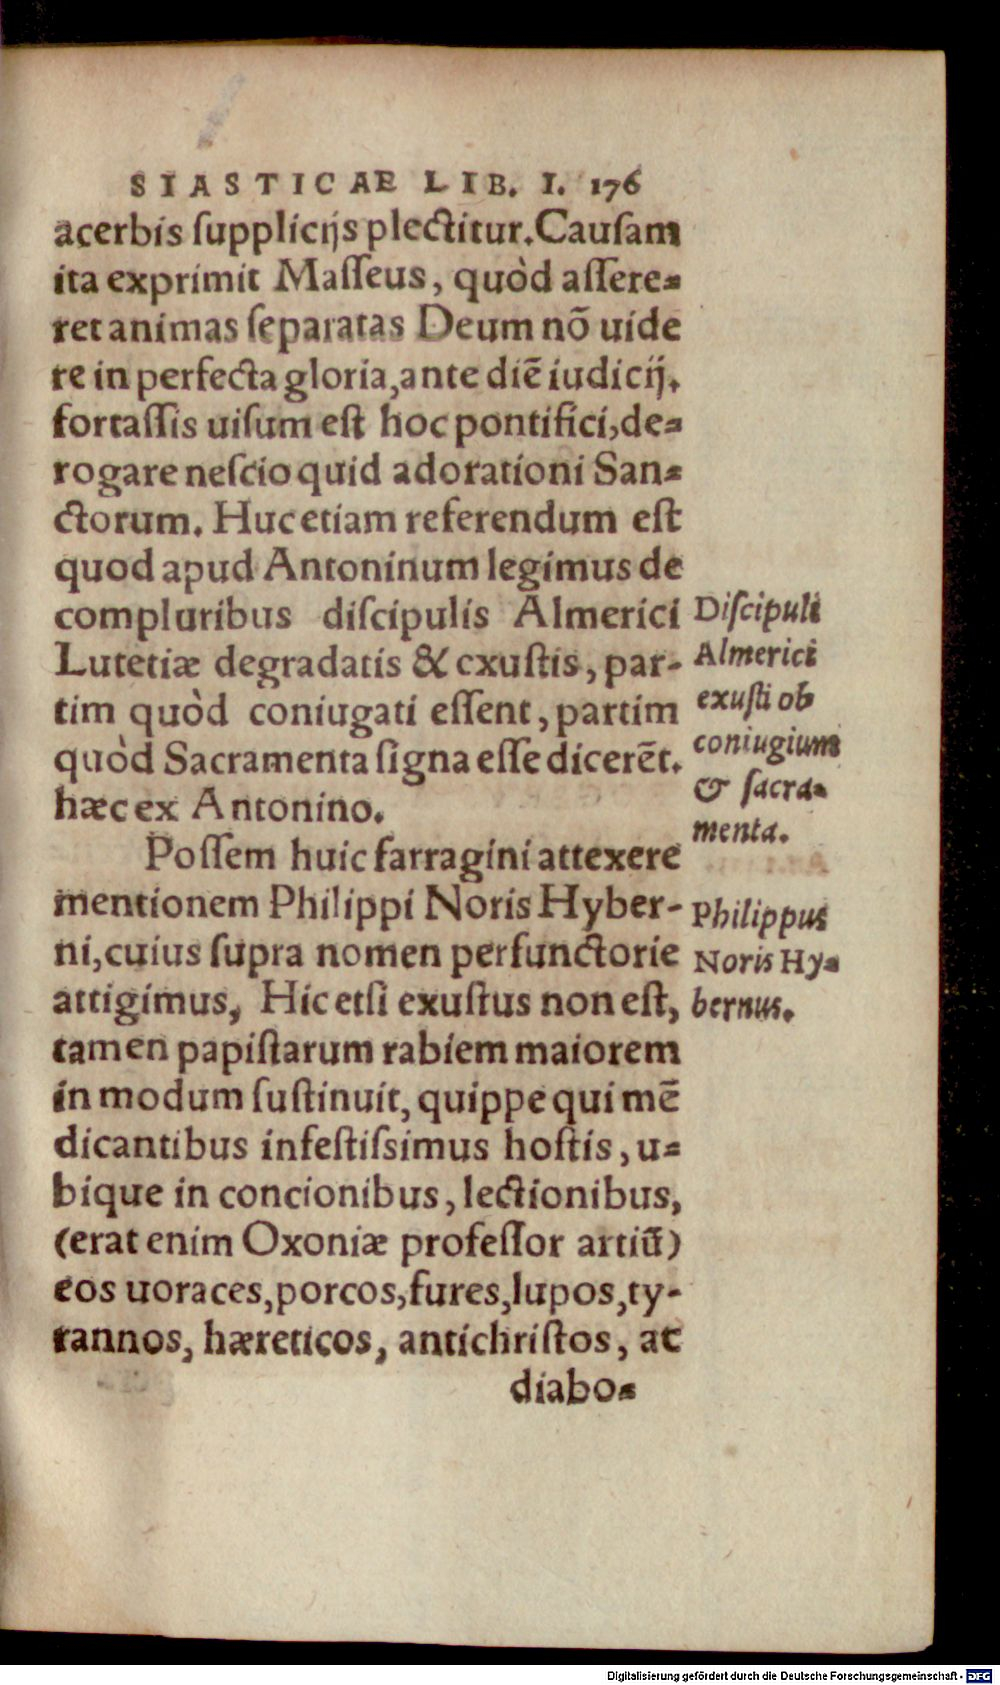 SIASTICAE LIB. I. 176
acerbis supplicijs plectitur. Causam
ita exprimit Masseus, quòd assere=
ret animas separatas Deum nō uide
re in perfecta gloria, ante diē iudicij.
fortassis uisum est hoc pontifici, de=
rogare nescio quid adorationi San=
ctorum. Huc etiam referendum est
quod apud Antoninum legimus de
compluribus discipulis Almerici
Lutetiæ degradatis & exustis, par-
tim quòd coniugati essent, partim
quòd Sacramenta signa esse dicerēt.
hæc ex Antonino.
Possem huic farragini attexere
mentionem Philippi Noris Hyber-
ni, cuius supra nomen perfunctorie
attigimus, Hic etsi exustus non est,
tamen papistarum rabiem maiorem
in modum sustinuit, quippe qui mē
dicantibus infestissimus hostis, u=
bique in concionibus, lectionibus,
(erat enim Oxoniæ professor artiū)
eos uoraces, porcos, fures, lupos, ty-
rannos, hæreticos, antichristos, ac
diabo=
Discipuli
Almerici
exusti ob
coniugium
& sacra=
menta.
Philippus
Noris Hy=
bernus.
Digitalisierung gefördert durch die Deutsche Forschungsgemeinschaft - DFG